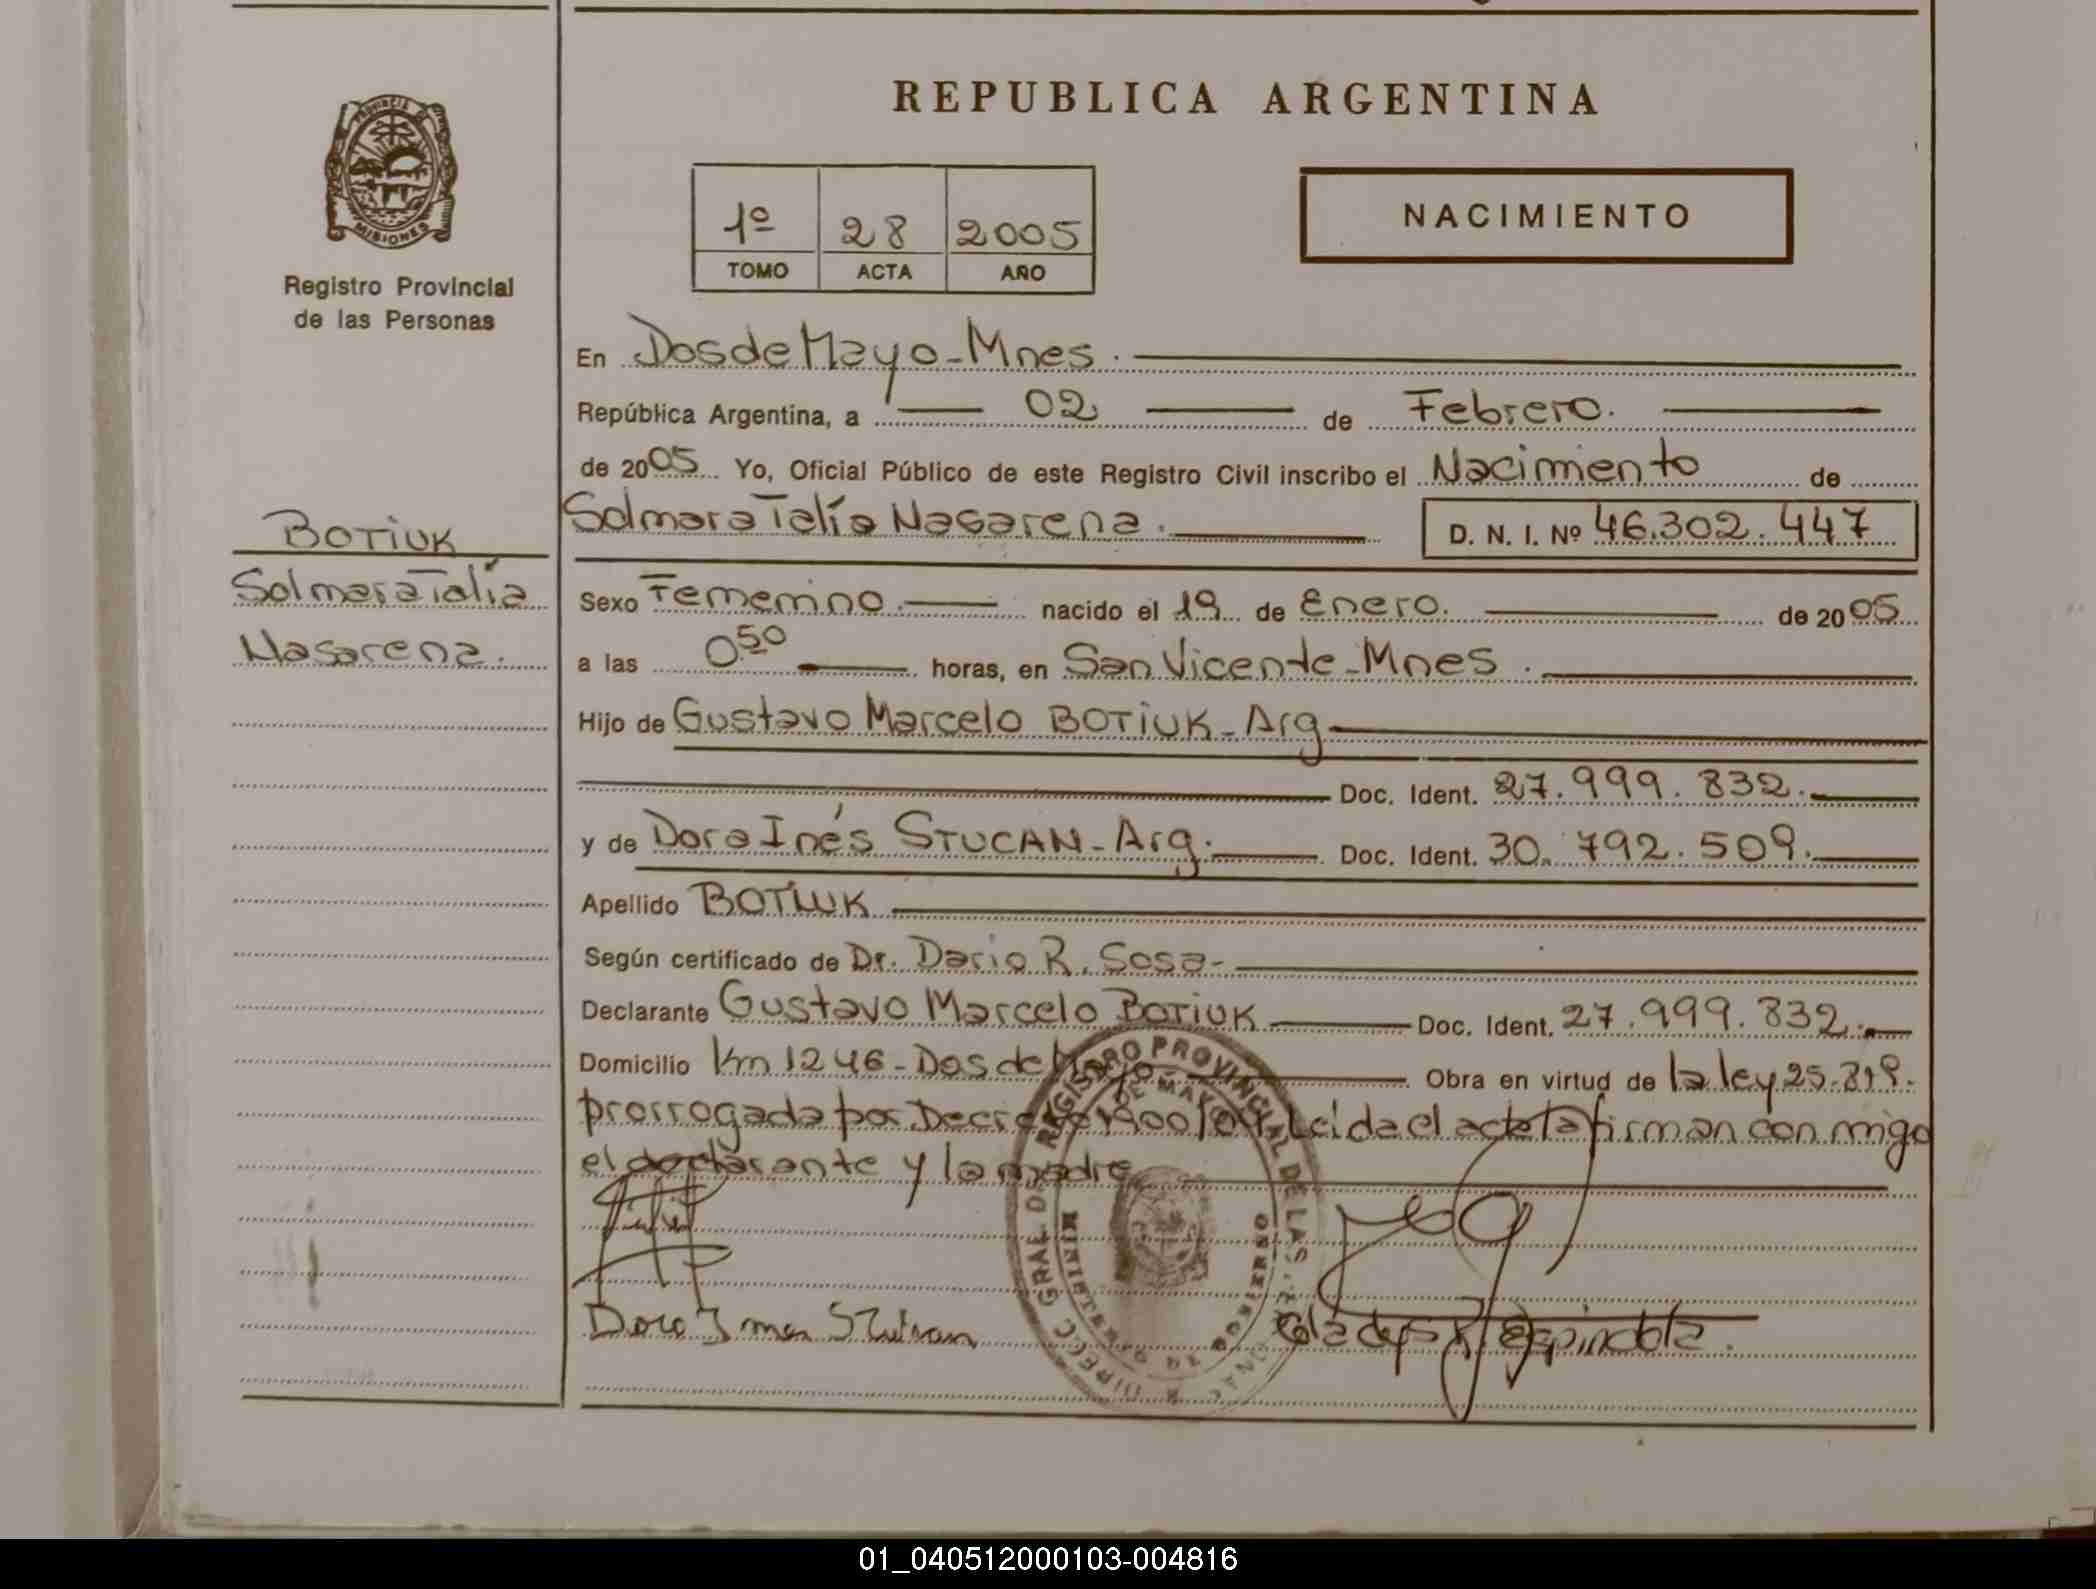 REPUBLICA ARGENTINA
PROVINCIA DE MISIONES
Registro Provincial
de las Personas
1º 28 2005
TOMO ACTA AÑO
NACIMIENTO
En Dos de Mayo - Mnes.
República Argentina, a 02 de Febrero.
de 2005 Yo, Oficial Público de este Registro Civil inscribo el Nacimiento de
Solmara Talía Nasarena. D. N. I. Nº 46.302.447
BOTIUK
Solmara Talía
Nasarena.
Sexo Femenino. nacido el 19 de Enero. de 2005
a las 0.50 horas, en San Vicente - Mnes.
Hijo de Gustavo Marcelo BOTIUK - Arg
Doc. Ident. 27.999.832.
y de Dora Inés STUCAN - Arg. Doc. Ident. 30.792.509.
Apellido BOTIUK
Según certificado de Dr. Dario R. Sosa -
Declarante Gustavo Marcelo BOTIUK Doc. Ident. 27.999.832.
Domicilio Km 1246 - Dos de Mayo - Obra en virtud de la ley 25.819.
prorrogada por Decreto 1900/04 Leída el acta la firman conmigo
el declarante y la madre
REGISTRO PROVINCIAL DE LAS
DE MAYO
MINISTERIO DE GOBIERNO
DIRECC GRAL DE
Gladys Espindola.
01_040512000103-004816